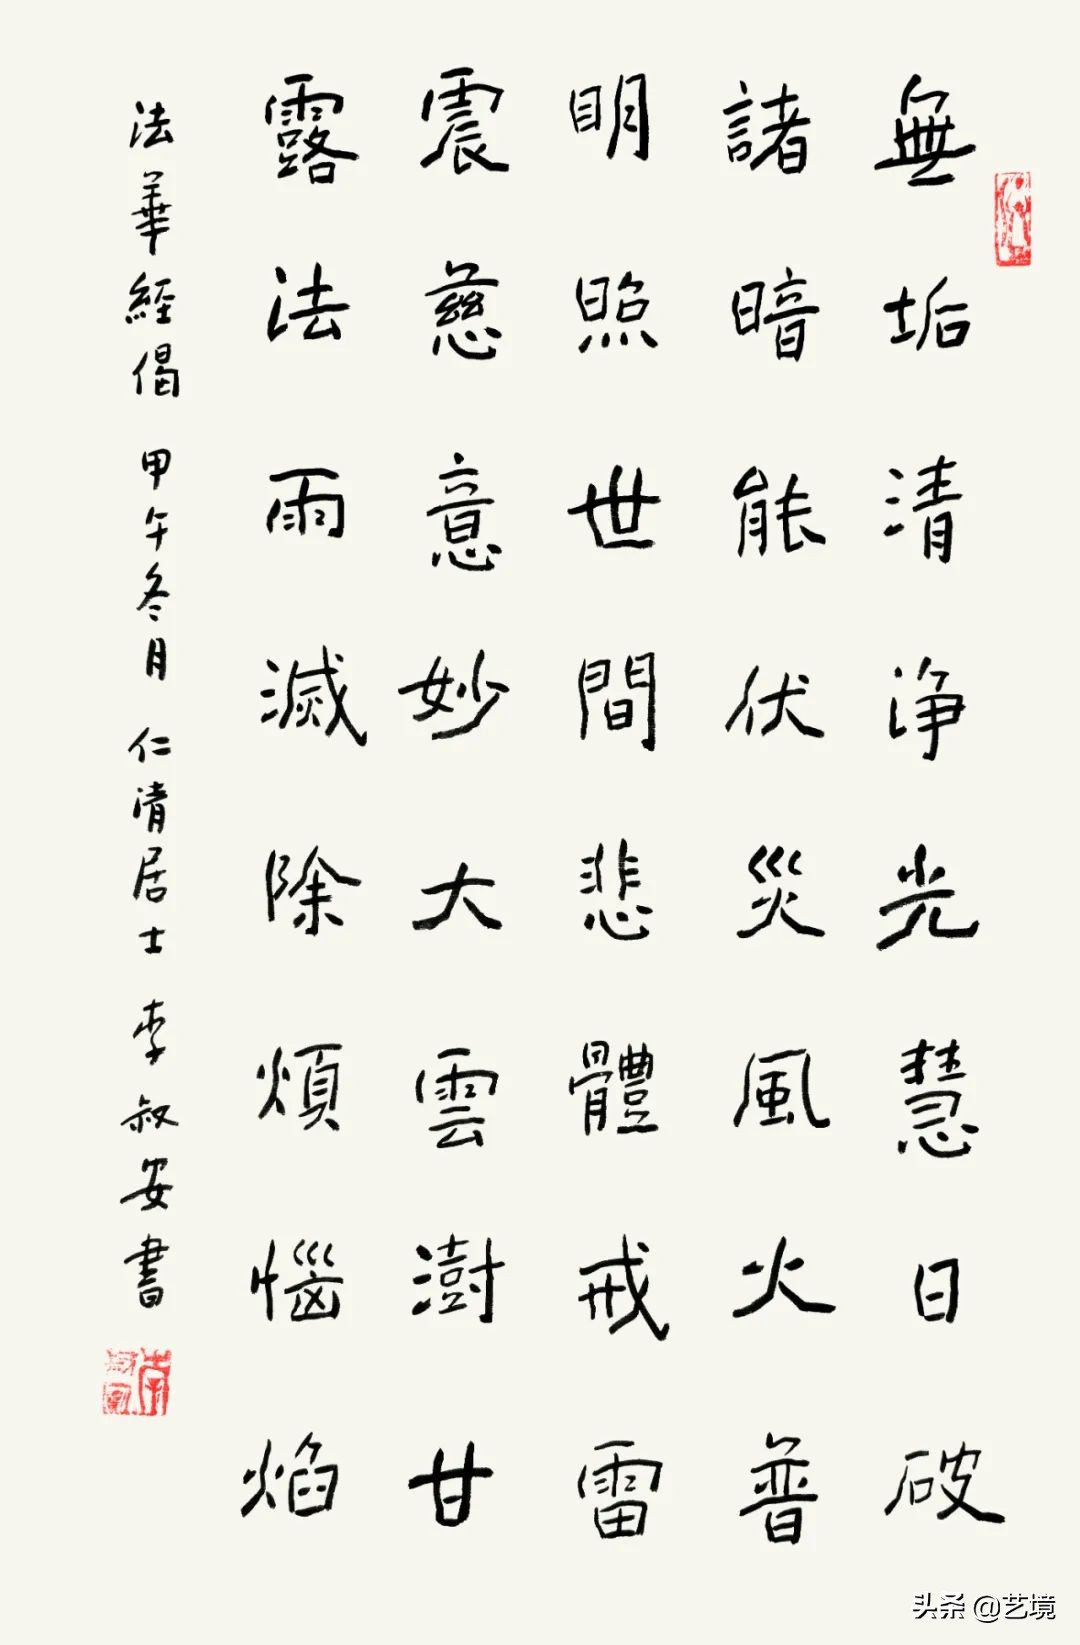 無垢清淨光慧日破
諸暗能伏災風火普
明照世間悲體戒雷
震慈意妙大雲澍甘
露法雨滅除煩惱焰
法華經偈 甲午冬月 仁清居士 李叔安書
头条 @艺境